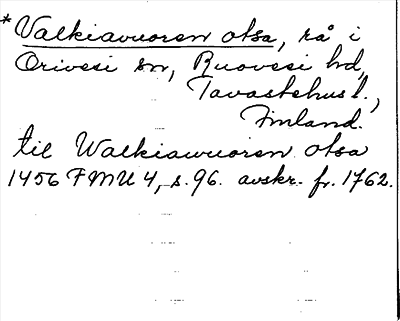 *Valkiavuoren otsa, rå i
Orivesi sn, Ruovesi hd,
Tavastehus l.,
Finland.
til Walkiawuoren otsa
1456 FMU 4, s. 96. avskr. fr. 1762.